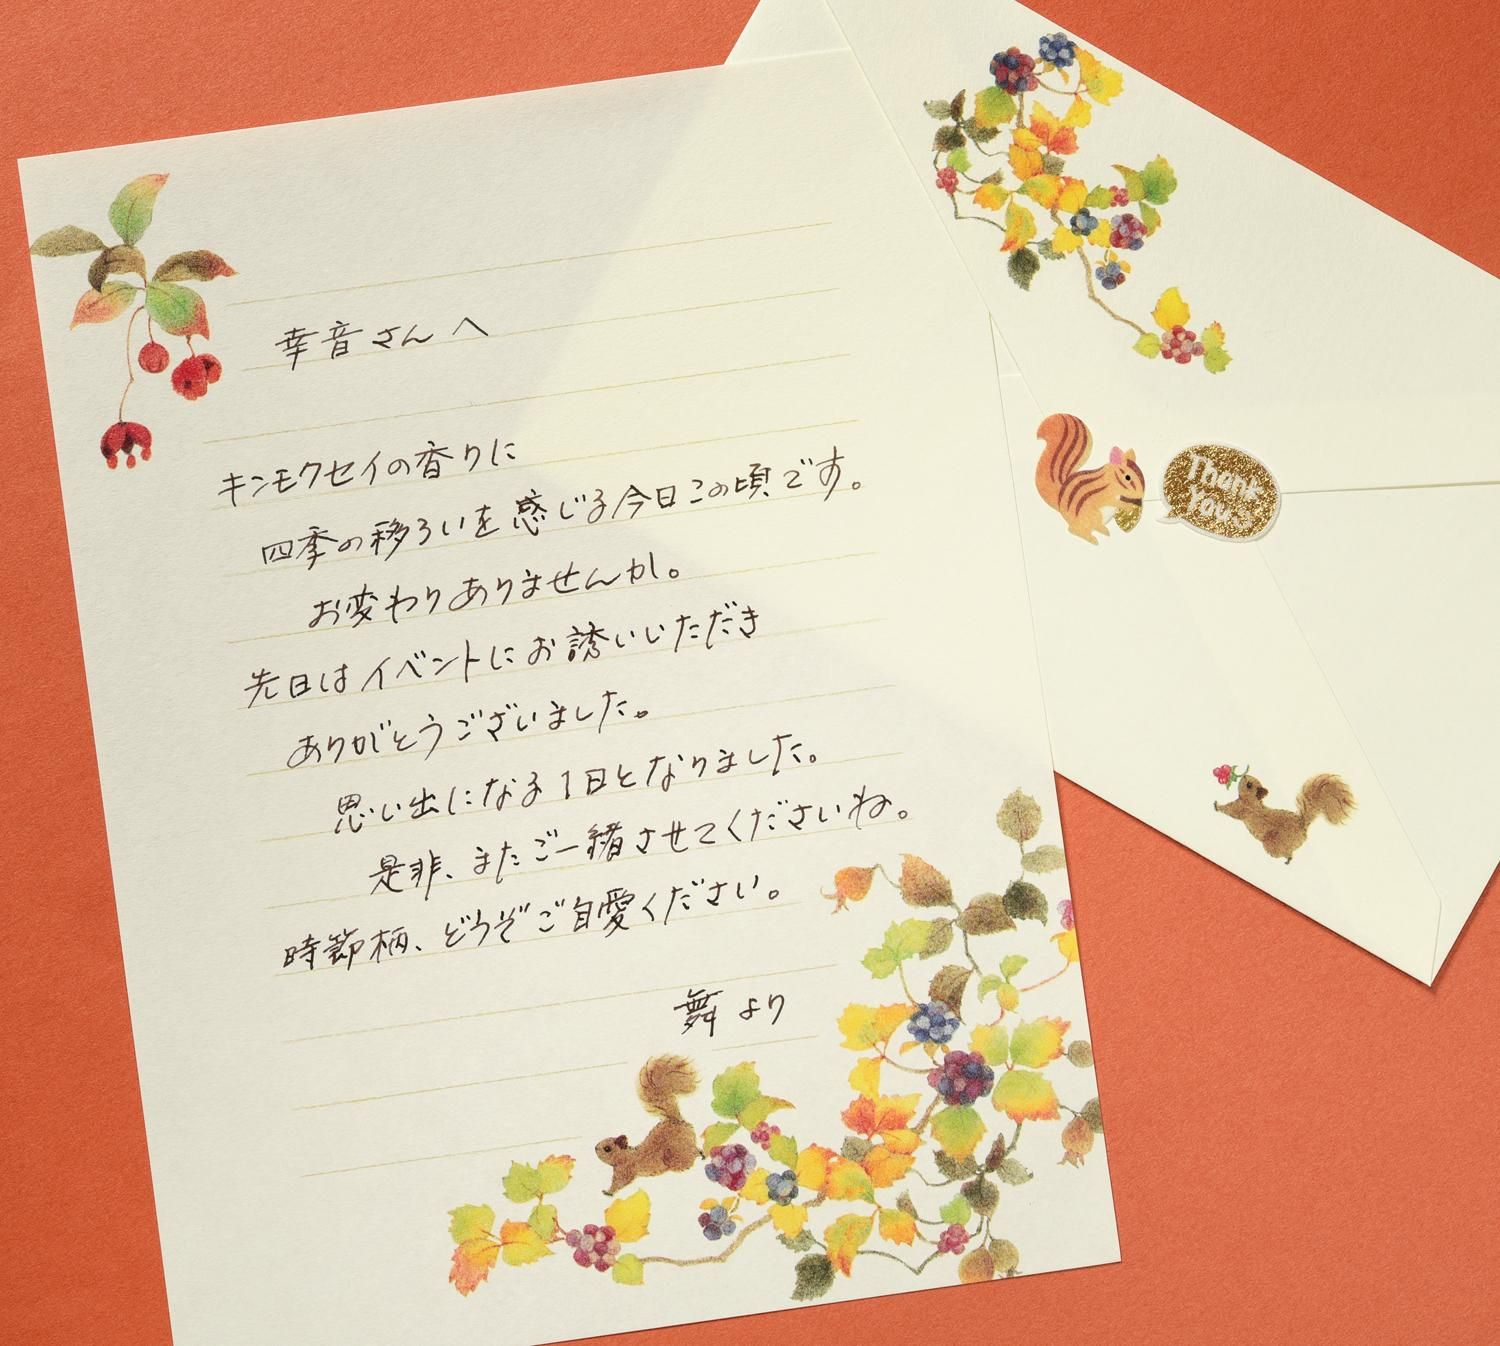 幸音さんへ
キンモクセイの香りに
四季の移ろいを感じる今日この頃です。
お変わりありませんか。
先日はイベントにお誘いいただき
ありがとうございました。
思い出になる1日となりました。
是非、またご一緒させてくださいね。
時節柄、どうぞご自愛ください。
舞より
Thank
You